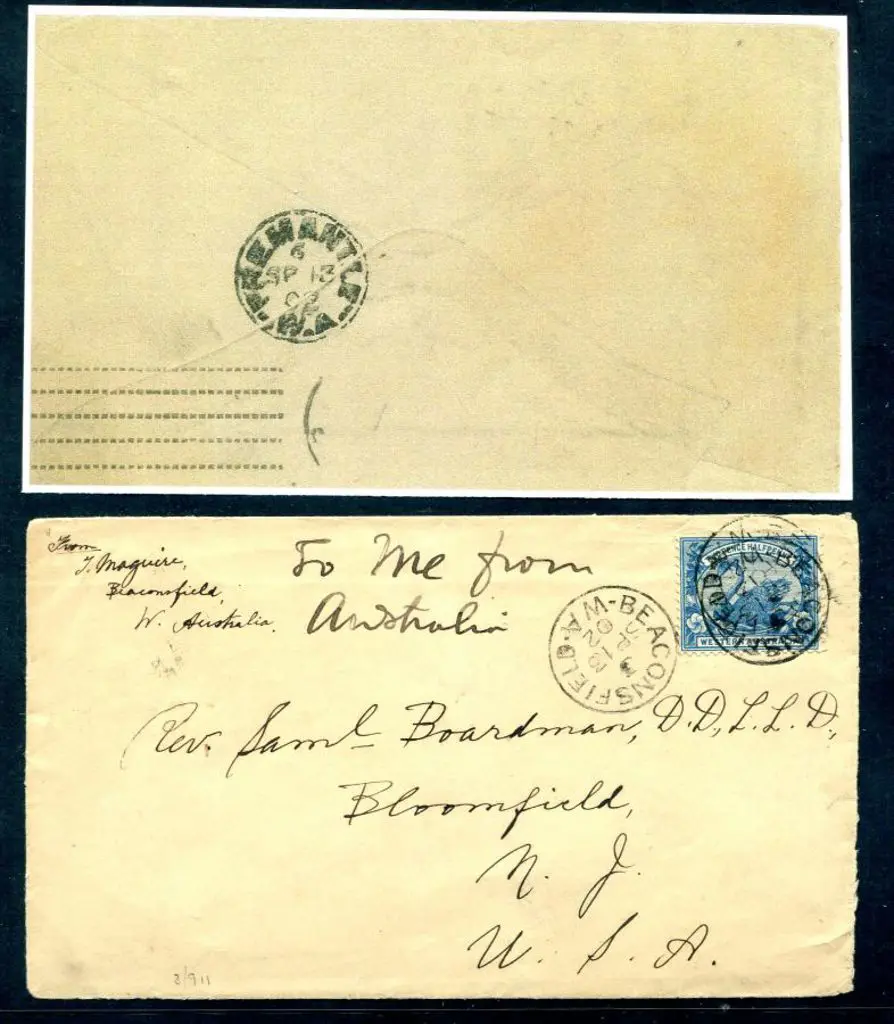 FREMANTLE
6
SP 13
02
W.A
From
J. Maguire,
Beaconsfield,
W. Australia.
To Me from
Australia
W.A
M-BEACONSFIELD-W.A
PENCE HALFPENNY
WESTERN AUSTRALIA
Rev. Saml Boardman, D.D., L.L.D.,
Bloomfield,
N. J.
U. S. A.